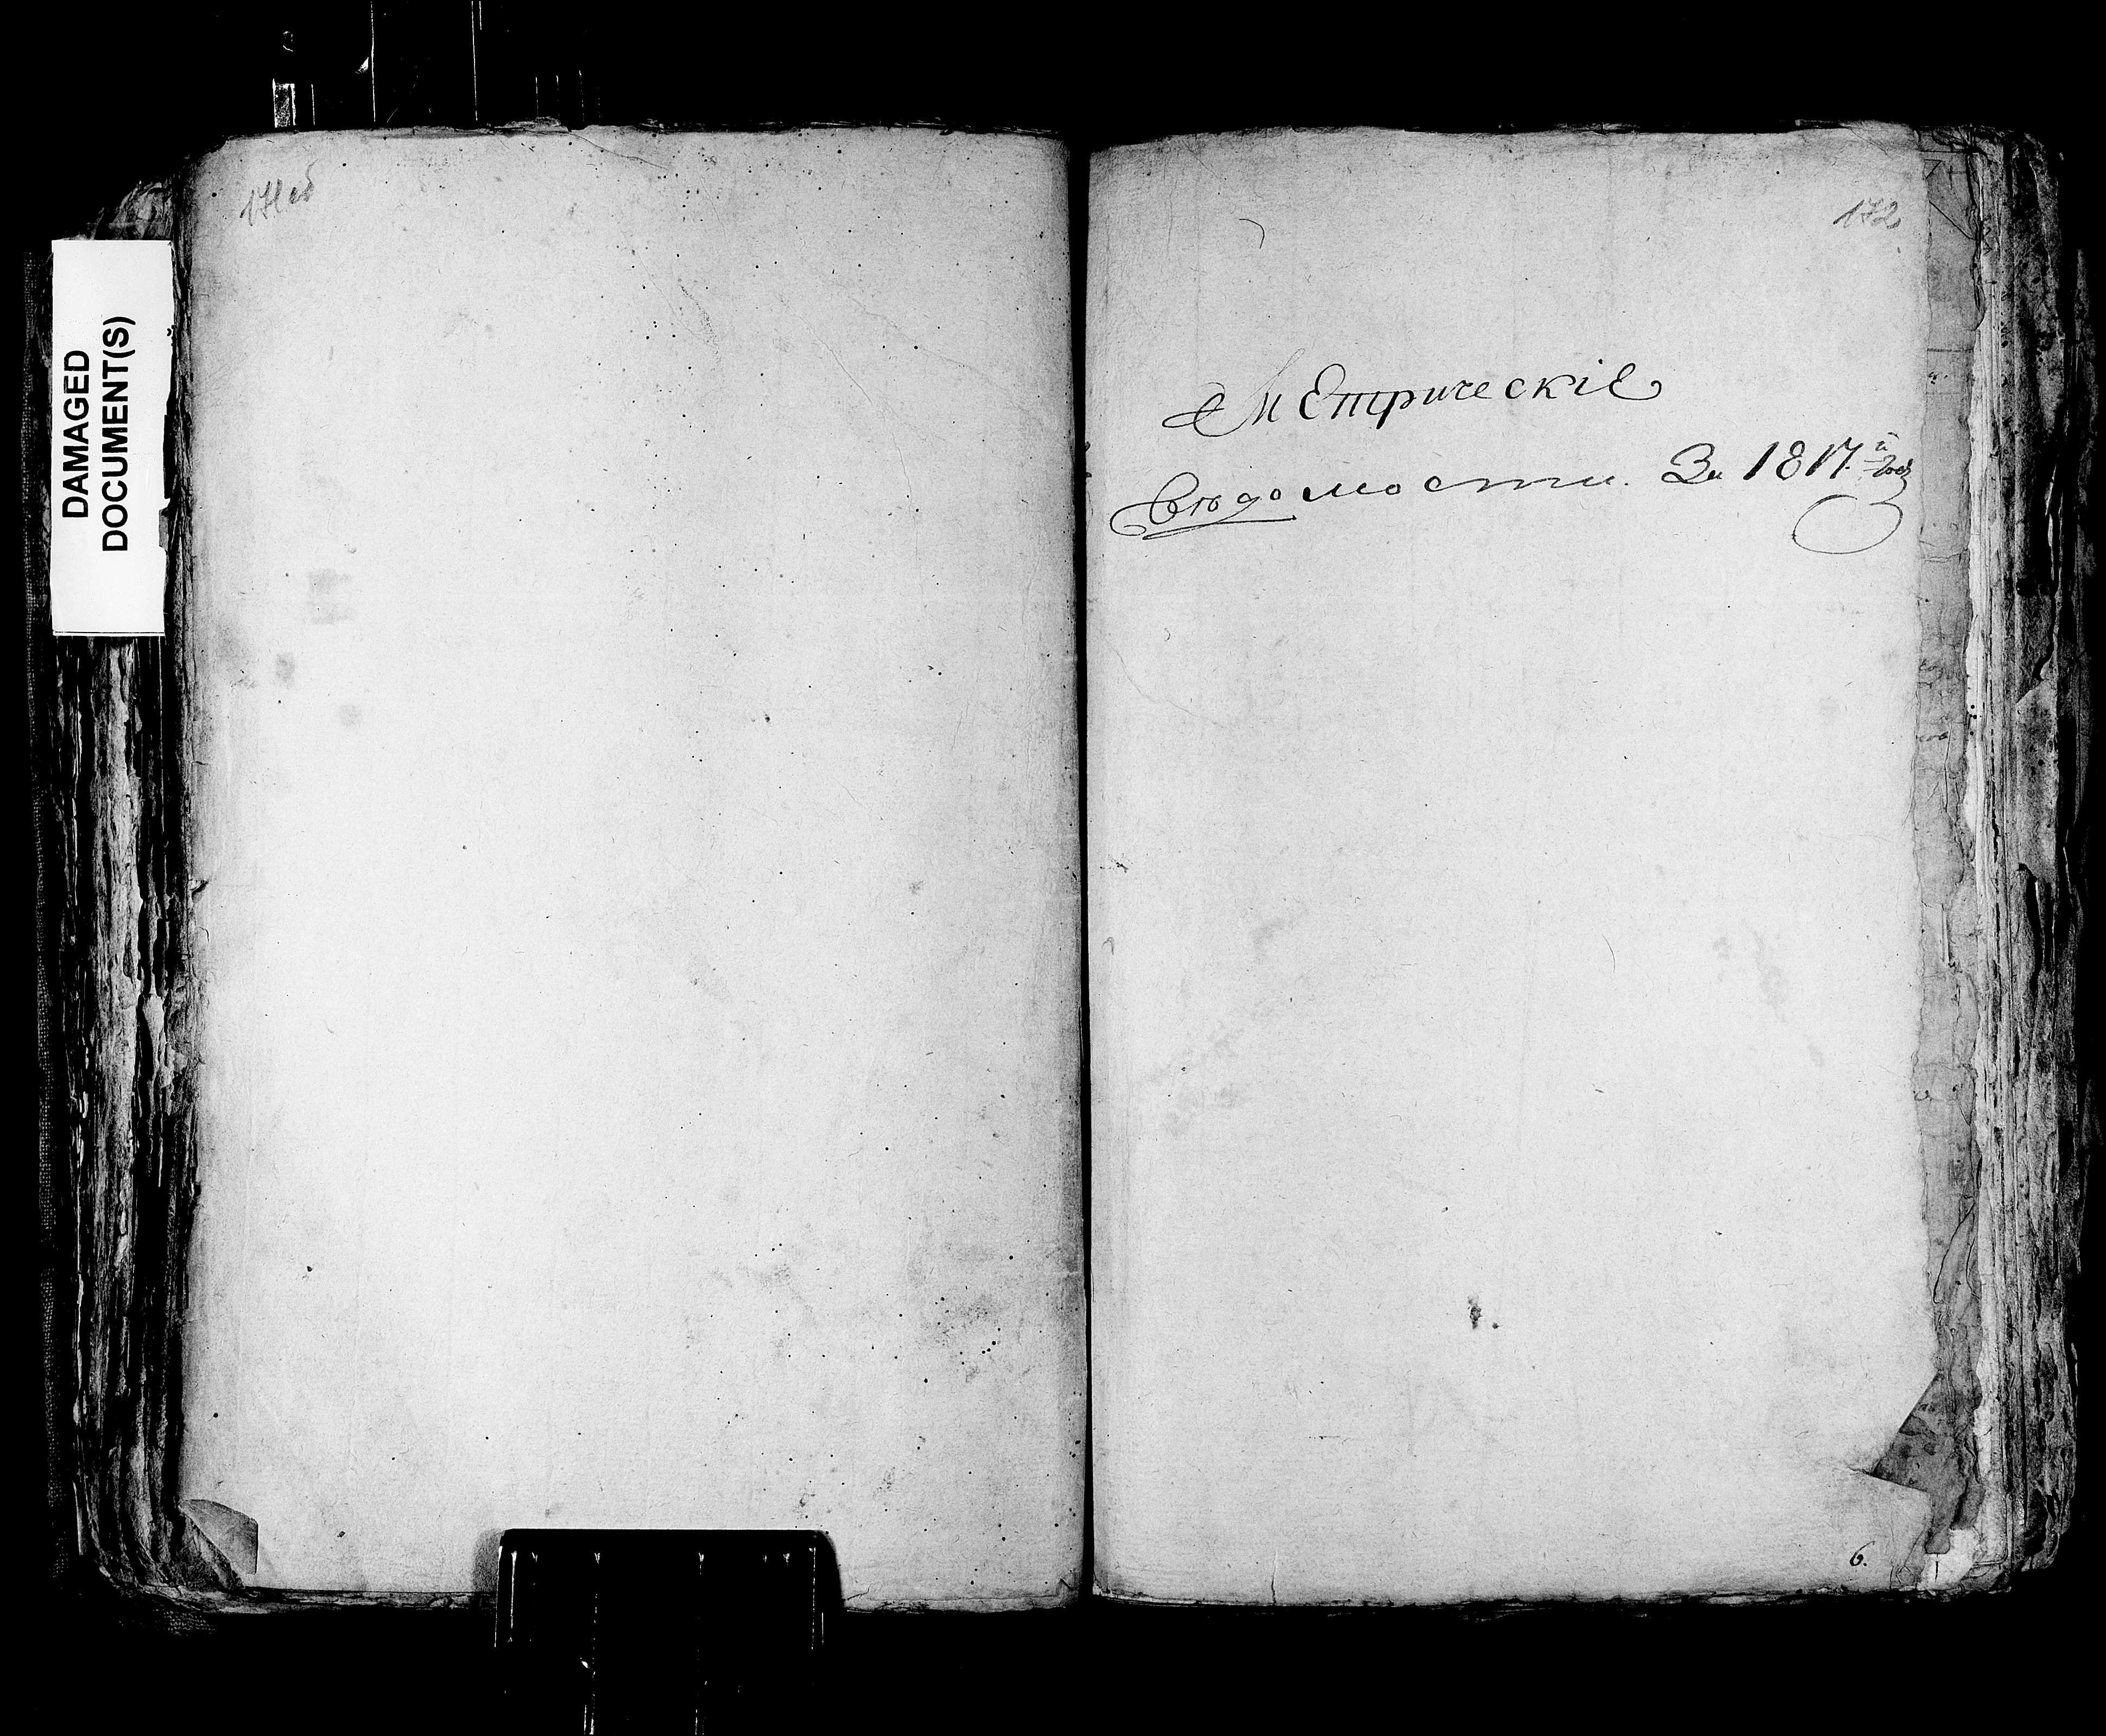 DAMAGED
DOCUMENT(S)
171об
172
Метрическіе
Вѣдомости. За 1817.й годъ
6.